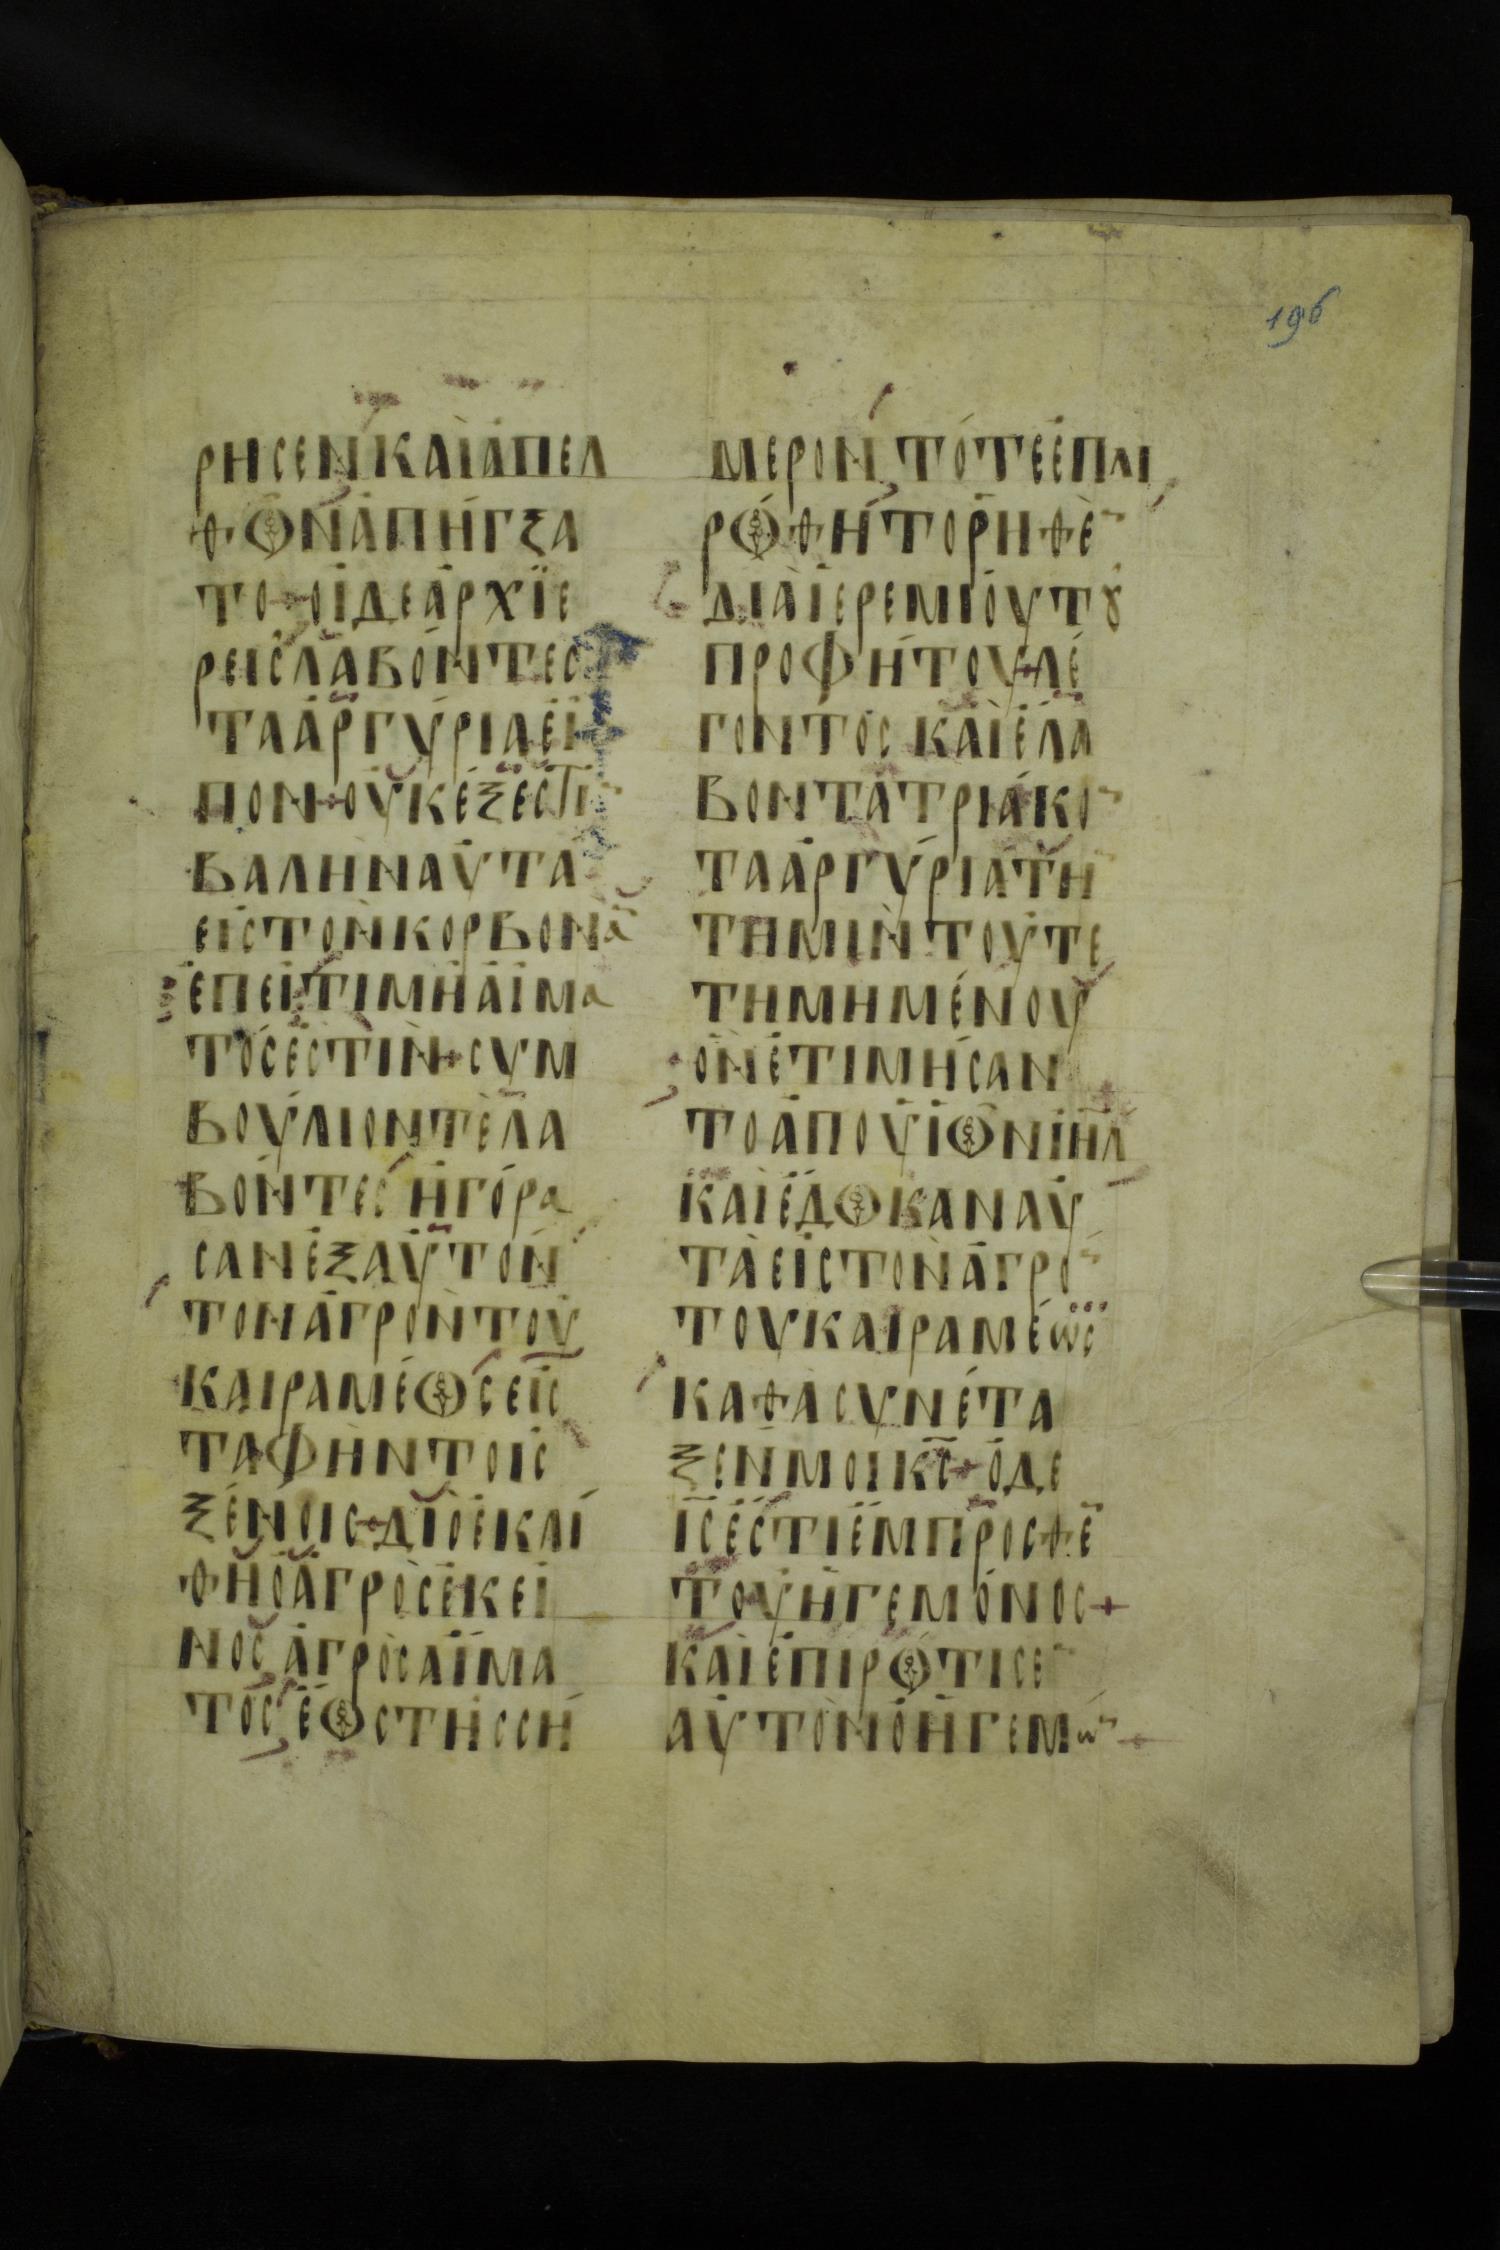 196
ρησεν καὶ ἀπελ
θων ἀπήγξα
το + οἱ δε ἀρχιε
ρεις λαβόντες
τα ἀργύρια εἶ
πον + οὐκ έξεστι
βαλην αὐτὰ
εἰς τον κορβονᾶ
ἐπει τιμὴ αἵμα
τός ἐστὶν + συμ
βούλιον τὲ λα
βόντες ἠγόρα
σαν ἐξ αὐτον
τον ἀγρὸν τοῦ
καιραμέως εἰς
ταφὴν τοις
ξένοις + διὸ ἐκλί
θη ὁ ἀγρὸς ἐκεῖ
νος ἀγρὸς αἵμα
τος ἕως τῆς σή
μερον τότε ἐπλι
ρώθη το ρηθὲν
διὰ ἰερεμίου τοῦ
προφήτου + λέ
γοντος και ἔλα
βον τα τριάκον
τα ἀργύρια τὴν
τημὶν τοῦ τε
τημημένου
ὃν ἐτιμήσαν
το ἀπο υἱων ιηλ
και ἔδωκαν αὐ
τὰ εἰς τον ἀγρὸν
του καιραμέως
καθα συνέτα
ξεν μοι κς + ὁ δε
ις ἔστι ἔμπροσθεν
τοῦ ἡγεμόνος +
καὶ ἐπιρώτισεν
αὐτὸν ὁ ἡγεμών +